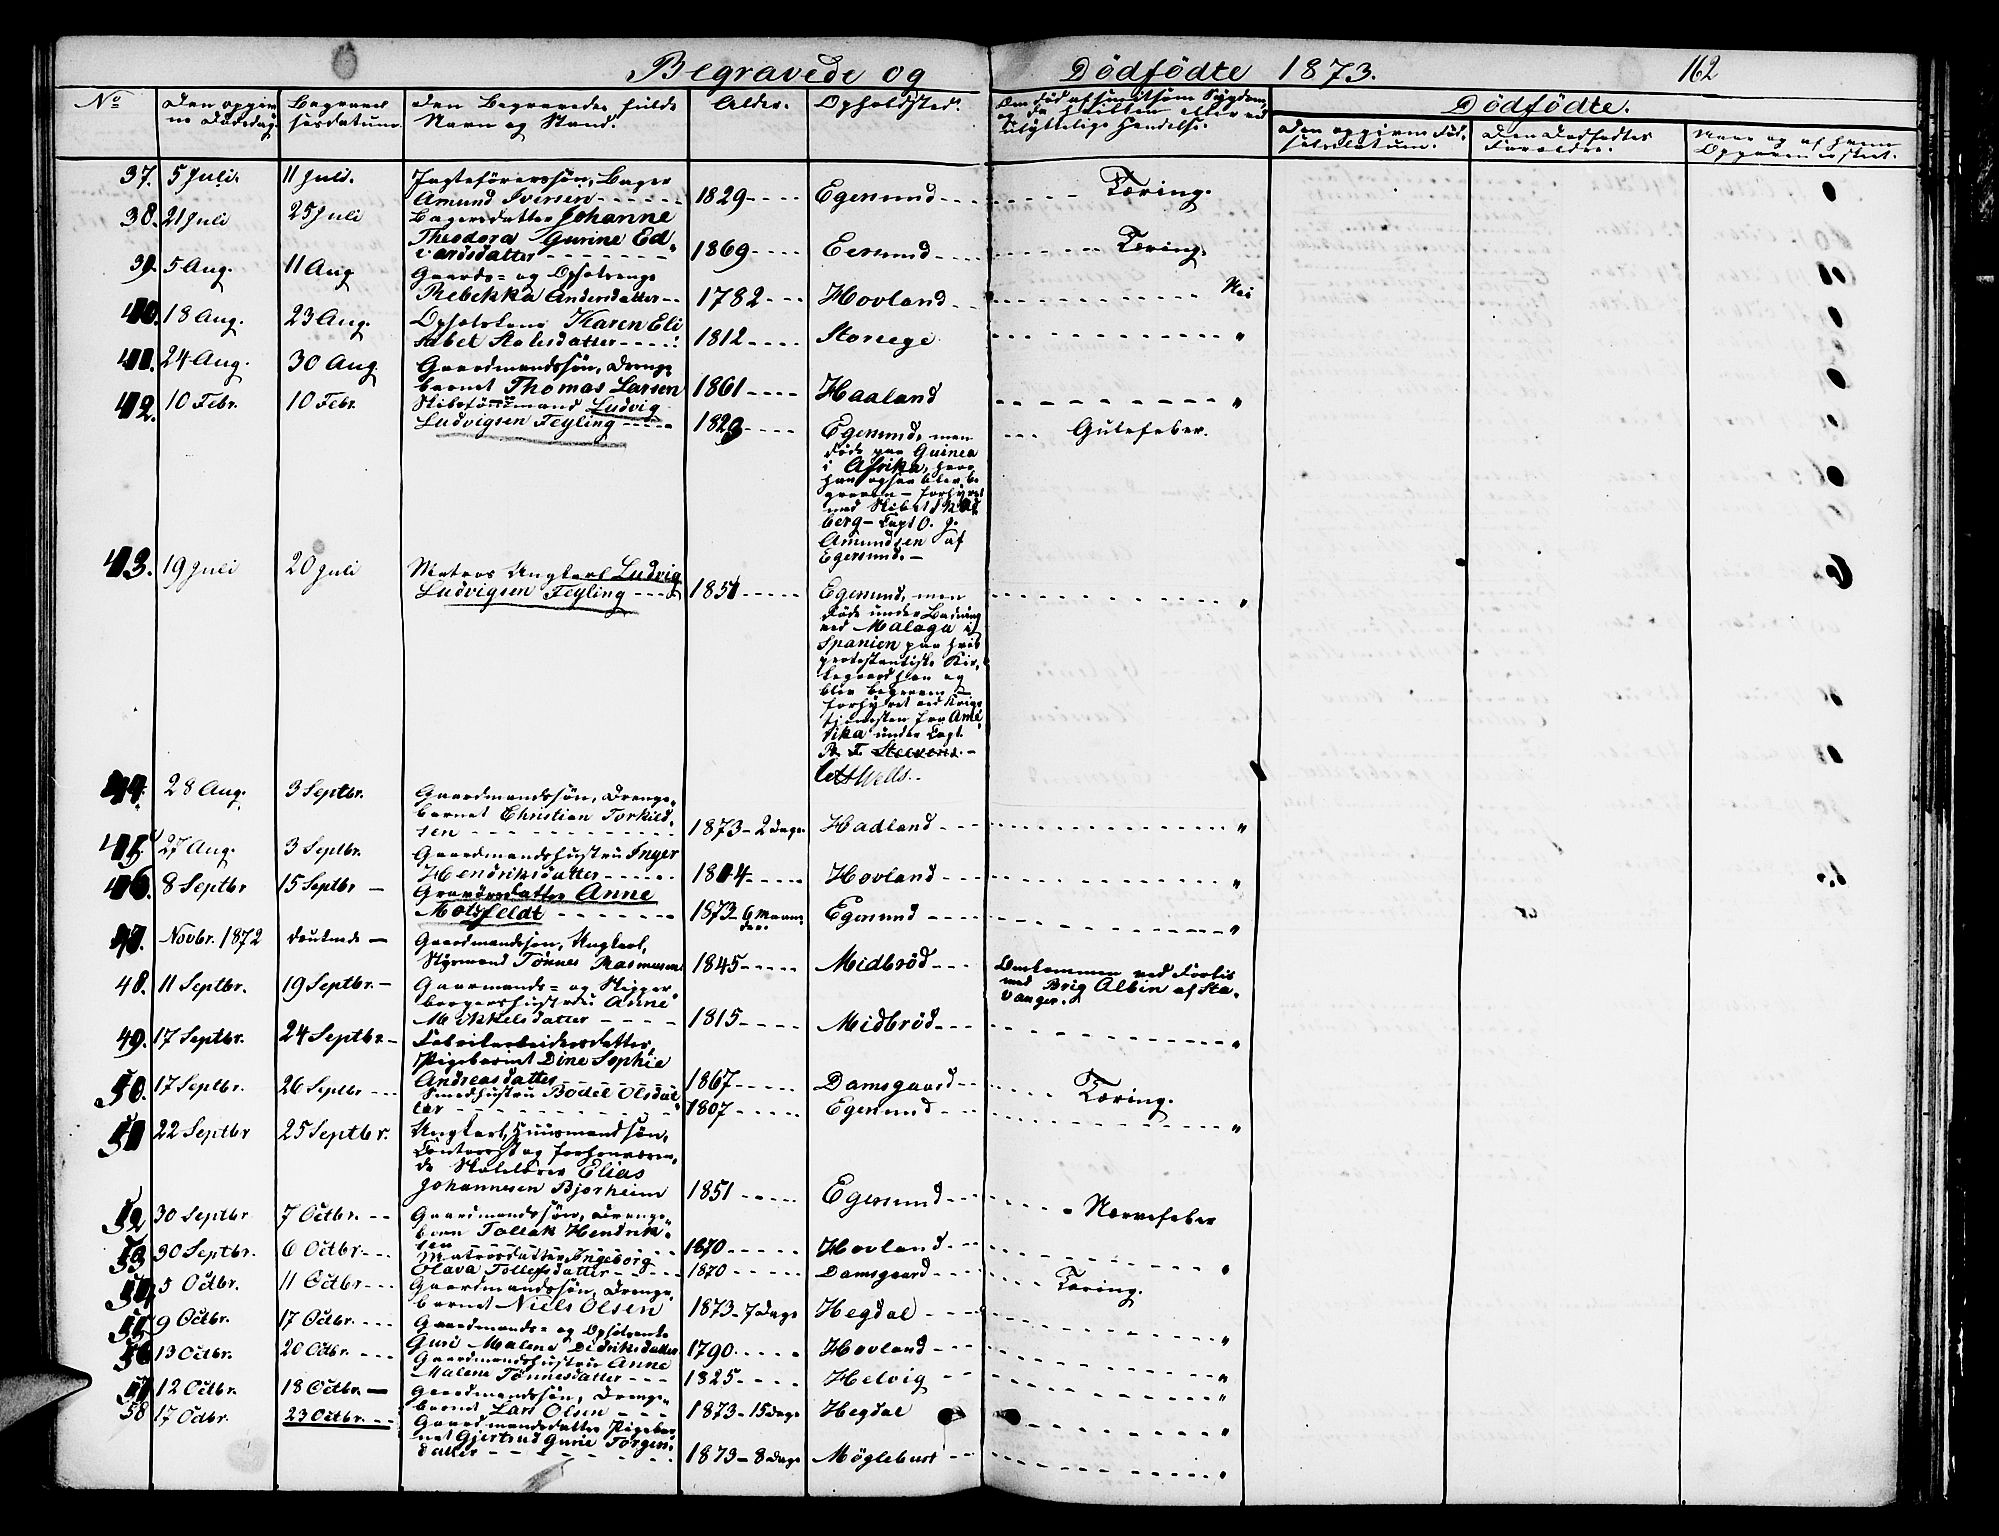 Begravede og Dödfödte 1873. 162
No Den opgivne Dödsdag. Begravelsesdatum. Den Begravedes fulde Navn og Stand. Alder. Opholdsted. Dödfödte.
Den opgivne Födselsdatum. Den Dödfödtes Forældre.
37. 5 Juli. 11 Juli. Jagteförersön, Bager
Amund Iversen 1829 Egersund Tæring.
38. 21 Juli 25 Juli Bagersdatter Johanne
Theodora Gurine Ed-
vardsdatter 1869 Eersund Tæring.
39. 5 Aug. 11 Aug. Gaards- og
Rebekka Andersdatter 1782 Hovland Nei
40. 18 Aug. 23 Aug. Karen Eli
sabet 1812 Storsege "
41. 24 Aug. 30 Aug. Gaardmandssön, Drenge
barnet Thomas Larsen 1861 Haaland "
42. 10 Febr. 10 Febr. Ludvig
Ludvigsen Feyling 1829 Egersund, men Gulefeber.
döde paa Guinea
i Afrika, hvor
han ogsaa blev be
graven - forhyret
med Skibet
berg - Capt O. J.
Amundsen af
Egersund.-
43. 19 Juli 20 Juli Matros Ungkarl Ludvig
Ludvigsen Feyling 1851 Egersund, men "
döde under Badning
ved Malaga i
Spanien paa hvis
protestantiske Kir-
kegaard han og
blev begraven -
forhyret ved Krigs
tjenesten fra Ame
rika under Capt.
Wells.
44. 28 Aug. 3 Septbr. Gaardmandssön, Drenge-
barnet Christian Torkild-
sen 1873 - 2 Dage Hadland "
45. 27 Aug. 3 Septbr. Gaardmandshustru Inger
Hendriksdatter Hovland "
46. 8 Septbr 15 Septbr Anne
Motzfeldt 1873 - 6 Maane
der. Egersund "
47. Novbr. 1872 Druknede Gaardmandssön, Ungkarl,
Styrmand Tönnes Rasmusen 1845 Midbröd Omkommen ved Forlis
med Brig Albin af Sta-
vanger.
48. 11 Septbr. 19 Septbr. Gaarmands- og Skipper-
borgershustru Anne
Mikkelsdatter 1815 Midbröd "
49. 17 Septbr. 24 Septbr. Fabrikarbeidersdatter,
Pigebarnet Dine Sophie
Andreasdatter 1867 Damsgaard Tæring.
50. 17 Septbr. 26 Septbr Smedhustru Bodel Olsdat
ter 1807 Egersund "
51 22 Septbr 25 Septbr. Ungkarl, Huusmandsön,
Contorist og forhenværen-
de Skolelærer Elias
Johannesen Bjorheim 1851 Egersund Nervefeber
52 30 Septbr 7 Octbr. Gaardmandssön, Drenge-
barn Tollak Hendrik-
sen 1870 Hovland "
53 30 Septbr. 6 Octbr. Matrosdatter Ingeborg
Olava Tollefsdatter 1870 Damsgaard Tæring.
54 5 Octbr. 11 Octbr. Gaardmandssön, Drenge-
barnet Niels Olsen 1873 - 7 Dage Hegdal "
55 9 Octbr. 17 Octbr. Gaardmands- og
Guri Malene Didriksdatter 1790 Hovland "
56 13 Octbr. 20 Octbr. Gaardmandshustru Anne
Malene Tönnesdatter 1825 Helvig "
57 12 Octbr. 18 Octbr. Gaardmandssön, Drenge-
barnet Lars Olsen 1873 - 15 Dage Hegdal "
58 17 Octbr. 23 Octbr. Gaardmandsdatter Pigebar
net Gjertrud Gurie Torgers
datter 1873 - 8 Dage Mögleburt "